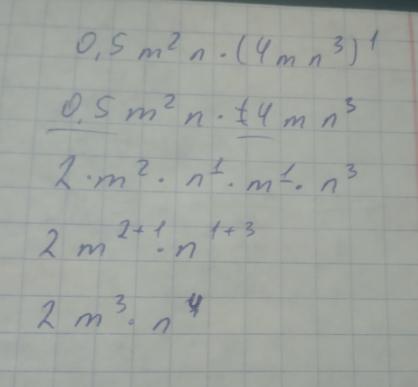 0,5 m² n · (4 m n³)¹
0,5 m² n · 14 m n³
2 · m² · n¹ · m¹ · n³
2 m²⁺¹ · n¹⁺³
2 m³ · n⁴